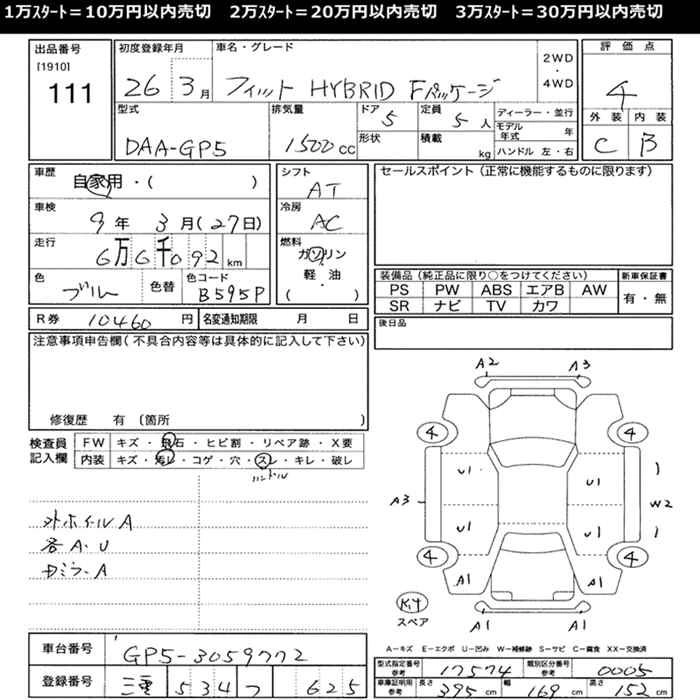 1万ｽﾀｰﾄ＝10万円以内売切　2万ｽﾀｰﾄ＝20万円以内売切　3万ｽﾀｰﾄ＝30万円以内売切
出品番号 初度登録年月 車名・グレード 評価点
[1910]
111 26 3月 フィット HYBRID Fパッケージ 2WD・4WD 4
型式 排気量 ドア 5 定員 5人 ディーラー・並行 外装 内装
DAA-GP5 1500cc 形状 積載 kg モデル年式 年 C B
ハンドル 左・右
車歴 自家用・( ) シフト AT セールスポイント（正常に機能するものに限ります）
車検 9年 3月(27日) 冷房 AC
走行 6万6千092km 燃料 ガソリン
軽・油
( )
色 ブルー 色替 色コード B595P 装備品（純正品に限り○をつけてください） 新車保証書
PS PW ABS エアB AW 有・無
SR ナビ TV カワ
R券 10460円 名変通知期限 月 日 後日品
注意事項申告欄（不具合内容等は具体的に記入して下さい）
修復歴 有（箇所 ）
検査員 FW キズ・飛石・ヒビ割・リペア跡・X要
記入欄 内装 キズ・汚レ・コゲ・穴・スレ・キレ・破レ
ハンドル
A2 A3
4 4
U1 U1
A3 W2
U1 U1
4 4
A1 A1
外ホイールA
各A・U
スペア
A1 A1
A－キズ E－エクボ U－凹み W－補修跡 S－サビ C－腐食 XX－交換済
車台番号 GP5-3059772 型式指定番号 参考 17574 類別区分番号 参考 0005
登録番号 三重 534 フ 625 車庫証明用 参考 長さ 395cm 幅 169cm 高さ 152cm